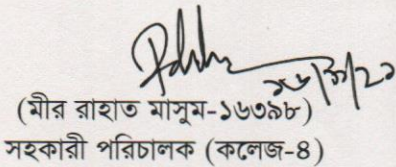 (মীর রাহাত মাসুম-১৬৩৯৮)
সহকারী পরিচালক (কলেজ-৪)